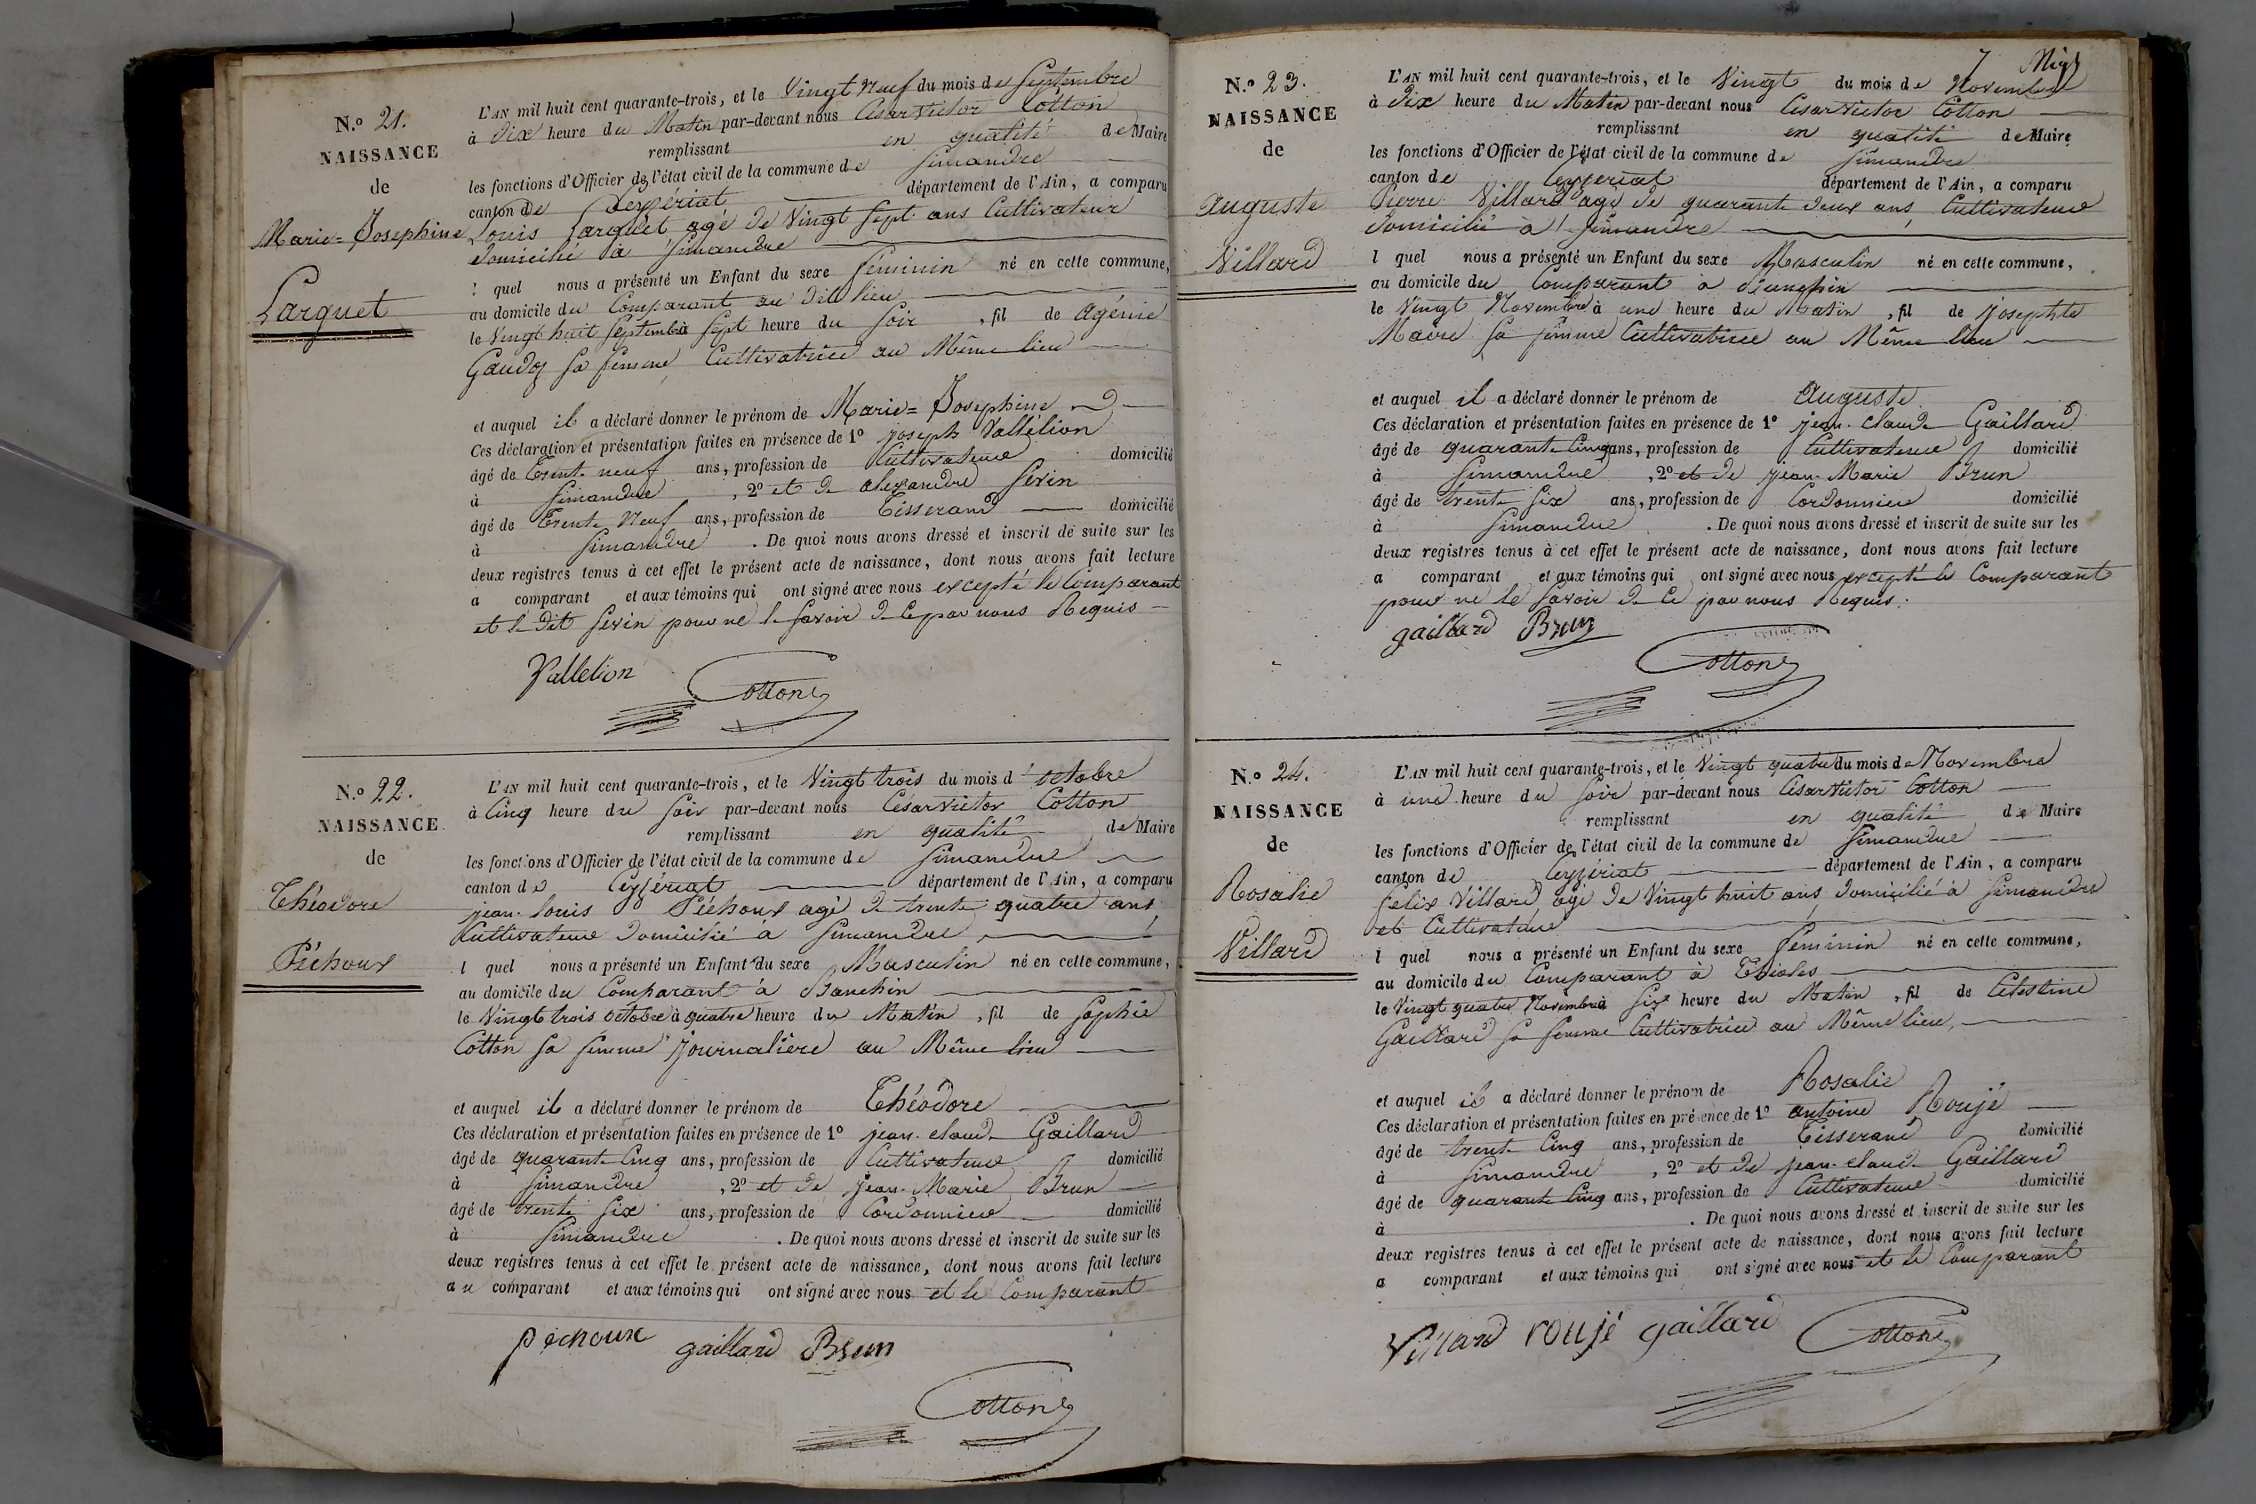 N.º 21.
NAISSANCE
de
Marie=Josephine
Larquet
L'AN mil huit cent quarante-trois, et le Vingt Neuf du mois de Septembre
à Dix heure du Matin par-devant nous César Victor Cotton
remplissant en qualité de Maire
les fonctions d'Officier de l'état civil de la commune de Simandre
canton de Ceyzériat département de l'Ain, a comparu
Louis Larquet agé de Vingt Sept ans Cultivateur
Domicilié à Simandre
l quel nous a présenté un Enfant du sexe Feminin né en cette commune,
au domicile du Comparant au dit lieu
le Vingt huit Septembre à Sept heure du Soir , fil de Agénie
Gaudoz sa femme Cultivatrice au Même lieu
et auquel il a déclaré donner le prénom de Marie=Josephine
Ces déclaration et présentation faites en présence de 1º joseph Vallélion
âgé de Trente neuf ans, profession de Cultivateur domicilié
à Simandre , 2º et de alexandre Sevin
âgé de Trente Neuf ans, profession de Tisserand domicilié
à Simandre . De quoi nous avons dressé et inscrit de suite sur les
deux registres tenus à cet effet le présent acte de naissance, dont nous avons fait lecture
a comparant et aux témoins qui ont signé avec nous excepté le Comparant
et le dit Sevin pour ne le Savoir de Ce par nous Requis
Valletion Cotton
N.º 22.
NAISSANCE
de
Théodore
Péchoux
L'AN mil huit cent quarante-trois, et le Vingt trois du mois d'octobre
à Cinq heure du Soir par-devant nous César Victor Cotton
remplissant en qualité de Maire
les fonctions d'Officier de l'état civil de la commune de Simandre
canton de Ceyzériat département de l'Ain, a comparu
jean-Louis Péchoux agé de trente quatre ans
Cultivateur Domicilié à Simandre
l quel nous a présenté un Enfant du sexe Masculin né en cette commune,
au domicile du Comparant à Banchin
le Vingt trois octobre à quatre heure du Matin , fil de Sophie
Cotton sa femme journaliere au Même lieu
et auquel il a déclaré donner le prénom de Théodore
Ces déclaration et présentation faites en présence de 1º jean-claude Gaillard
âgé de quarante Cinq ans, profession de Cultivateur domicilié
à Simandre , 2º et de jean-Marie Brun
âgé de trente six ans, profession de Cordonnier domicilié
à Simandre . De quoi nous avons dressé et inscrit de suite sur les
deux registres tenus à cet effet le présent acte de naissance, dont nous avons fait lecture
au comparant et aux témoins qui ont signé avec nous et le Comparant
péchoux gaillard Brun
Cotton
7
N.º 23.
NAISSANCE
de
Auguste
Villard
L'AN mil huit cent quarante-trois, et le Vingt du mois de Novembre
à Dix heure du Matin par-devant nous César Victor Cotton
remplissant en qualité de Maire
les fonctions d'Officier de l'état civil de la commune de Simandre
canton de Ceyzeriat département de l'Ain, a comparu
Pierre Villard agé de quarante deux ans Cultivateur
Domicilié à Simandre
l quel nous a présenté un Enfant du sexe Masculin né en cette commune,
au domicile du Comparant à
le Vingt Novembre à une heure du Matin , fil de josephte
Maire sa femme Cultivatrice au Même lieu
et auquel il a déclaré donner le prénom de Auguste
Ces déclaration et présentation faites en présence de 1º jean-claude Gaillard
âgé de quarante Cinq ans, profession de Cultivateur domicilié
à Simandre , 2º et de jean-Marie Brun
âgé de trente six ans, profession de Cordonnier domicilié
à Simandre . De quoi nous avons dressé et inscrit de suite sur les
deux registres tenus à cet effet le présent acte de naissance, dont nous avons fait lecture
a comparant et aux témoins qui ont signé avec nous excepté le Comparant
pour ne le Savoir de Ce par nous Requis.
gaillard Brun
Cotton
N.º 24.
NAISSANCE
de
Rosalie
Villard
L'AN mil huit cent quarante-trois, et le Vingt quatre du mois de Novembre
à une heure du Soir par-devant nous César Victor Cotton
remplissant en qualité de Maire
les fonctions d'Officier de l'état civil de la commune de Simandre
canton de Ceyzériat département de l'Ain, a comparu
felix Villard agé de Vingt huit ans, Domicilié à Simandre
et Cultivateur
l quel nous a présenté un Enfant du sexe Feminin né en cette commune,
au domicile du Comparant à Thioles
le Vingt quatre Novembre à Six heure du Matin , fil de Célestine
Gaillard sa femme Cultivatrice au Même lieu,
et auquel il a déclaré donner le prénom de Rosalie
Ces déclaration et présentation faites en présence de 1º antoine Roujé
âgé de trente Cinq ans, profession de Tisserand domicilié
à Simandre , 2º et de jean-claude Gaillard
âgé de quarante Cinq ans, profession de Cultivateur domicilié
à . De quoi nous avons dressé et inscrit de suite sur les
deux registres tenus à cet effet le présent acte de naissance, dont nous avons fait lecture
a comparant et aux témoins qui ont signé avec nous et le Comparant
Villard roujé gaillard Cotton